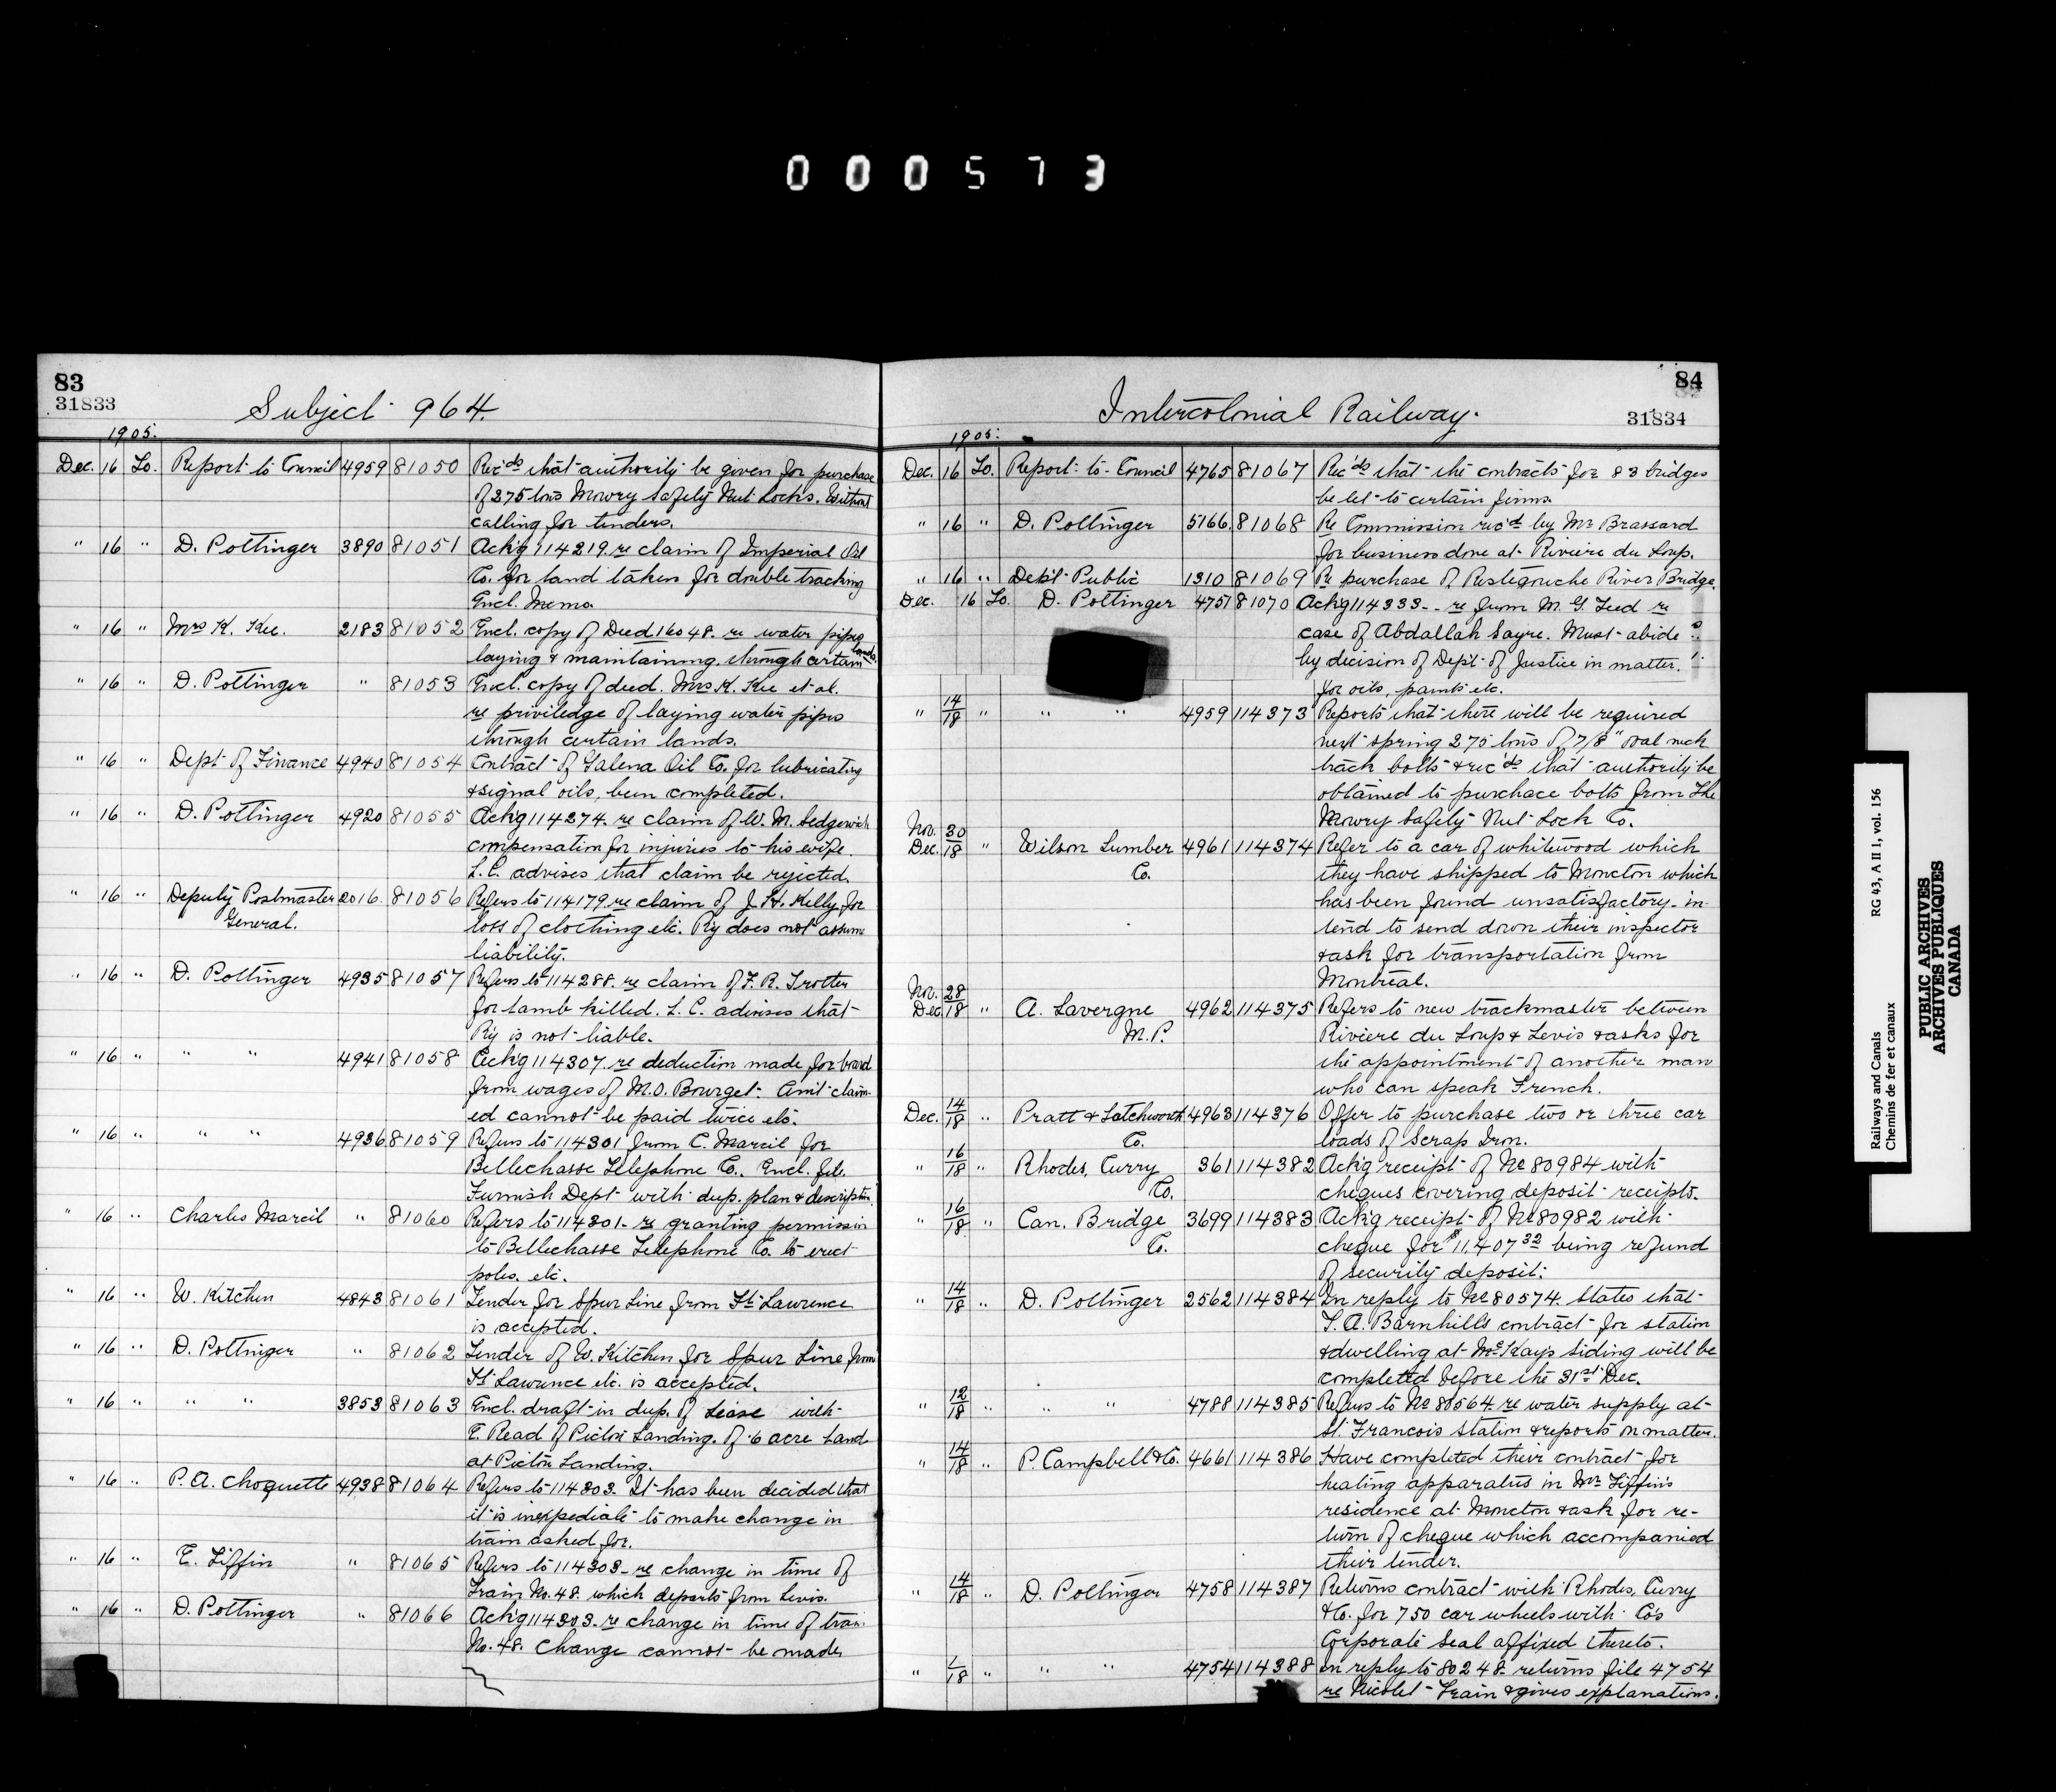 000573
83
31833
Subject 964.
1905.
Dec. 16 To. Report to Council 4959 81050 Rec'ds that authority be given for purchase
of 275 tons Mowry Safety Nut Locks. Without
calling for tenders.
" 16 " D. Pottinger 3890 81051 Ack'g 114219. re claim of Imperial Oil
Co. for land taken for double tracking
Encl. Memo.
" 16 " Mrs K. Kee. 2183 81052 Encl. copy of Deed 16048. re water pipes
laying & maintaining, through certain lands.
" 16 " D. Pottinger " 81053 Encl. copy of deed. Mrs. K. Kee et al.
re priviledge of laying water pipes
through certain lands.
" 16 " Dept of Finance 4940 81054 Contract of Galena Oil Co. for lubricating
& signal oils, been completed.
" 16 " D. Pottinger 4920 81055 Ack'g 114274. re claim of W. M. Sedgewick
compensation for injuries to his wife.
L.C. advises that claim be rejected.
" 16 " Deputy Postmaster 2016. 81056 Refers to 114179 re claim of J. H. Kelly for
General. loss of clothing etc. Ry does not assume
liability.
" 16 " D. Pottinger 4935 81057 Refers to 114288. re claim of F. R. Trotter
for lamb killed. L. C. advises that
Ry is not liable.
" 16 " " " 4941 81058 Ack'g 114307. re deduction made for board
from wages of M.O. Bourget. Amt claim-
ed cannot be paid twice etc.
" 16 " " " 4936 81059 Refers to 114301 from C. Marcil for
Bellechasse Telephone Co. Encl. file.
Furnish Dept with dup. plan & description.
" 16 " Charles Marcil " 81060 Refers to 114301 re granting permission
to Bellechasse Telephone Co. to erect
poles, etc.
" 16 " W. Kitchen 4843 81061 Tender for Spur Line from St. Lawrence
is accepted.
" 16 " D. Pottinger " 81062 Tender of W. Kitchen for Spur Line from
St Lawrence etc. is accepted.
" 16 " " " 3853 81063 Encl. draft in dup. of Lease with
E. Read of Pictou Landing. of .6 acre Land
at Pictou Landing.
" 16 " P. A. Choquette 4938 81064 Refers to 114303. It has been decided that
it is inexpediate to make change in
train asked for.
" 16 " E. Tiffin " 81065 Refers to 114303 re change in time of
Train No. 48. which departs from Levis.
" 16 " D. Pottinger " 81066 Ack'g 114303. re change in time of train
No. 48. Change cannot be made
84
31834
Intercolonial Railway.
1905.
Dec. 16 To. Report to Council 4765 81067 Rec'ds that the contracts for 83 bridges
be let to certain firms.
" 16 " D. Pottinger 5166. 81068 Re Commission rec'd by Mr Brassard
for business done at Riviere du Loup.
" 16 " Dep't Public 1310 81069 Re purchase of Restegouche River Bridge.
Dec. 16 To. D. Pottinger 4757 81070 Ack'g 114333 re from M. G. Teed re
case of Abdallah Sayre. Must abide
by decision of Dep't of Justice in matter.
for oils, paints etc.
" 14/18 " " " 4959 114373 Reports that there will be required
next spring 275 tons of 7/8" oval neck
track bolts & rec'ds that authority be
obtained to purchace bolts from the
Mowry Safety Nut Lock Co.
Nov. 30
Dec. 18 " Wilson Lumber 4961 114374 Refer to a car of whitewood which
Co. they have shipped to Moncton which
has been found unsatisfactory - in-
tend to send down their inspector
& ask for transportation from
Montreal.
Nov. 28
Dec. 18 " A. Lavergne 4962 114375 Refers to new trackmaster between
M.P. Riviere du Loup & Levis & asks for
the appointment of another man
who can speak French.
Dec. 14/18 " Pratt & Letchworth 4963 114376 Offer to purchase two or three car
Co. loads of Scrap Iron.
" 16/18 " Rhodes, Curry 361 114382 Ack'g receipt of No 80984 with
Co. cheques covering deposit receipts.
" 16/18 " Can. Bridge 3699 114383 Ack'g receipt of No 80982 with
Co. cheque for $11,407 32 being refund
of security deposit.
" 14/18 " D. Pottinger 2562 114384 In reply to No 80574. States that
T. A. Barnhills contract for station
& dwelling at McKays Siding will be
completed before the 31st Dec.
" 12/18 " " " 4788 114385 Refers to No 80564 re water supply at
St. Francois Station & reports on matter.
" 14/18 " P. Campbell & Co. 4661 114386 Have completed their contract for
heating apparatus in Mr Tiffin's
residence at Moncton & ask for re-
turn of cheque which accompanied
their tender.
" 14/18 " D. Pottinger 4758 114387 Returns contract with Rhodes, Curry
& Co. for 750 car wheels with Co's
Corporate Seal affixed thereto.
" 1/18 " " " 4754 114388 In reply to 80248 returns file 4754
re Nicolet Train & gives explanations.
Railways and Canals RG 43, A II 1, vol. 156
Chemins de fer et canaux
PUBLIC ARCHIVES
ARCHIVES PUBLIQUES
CANADA